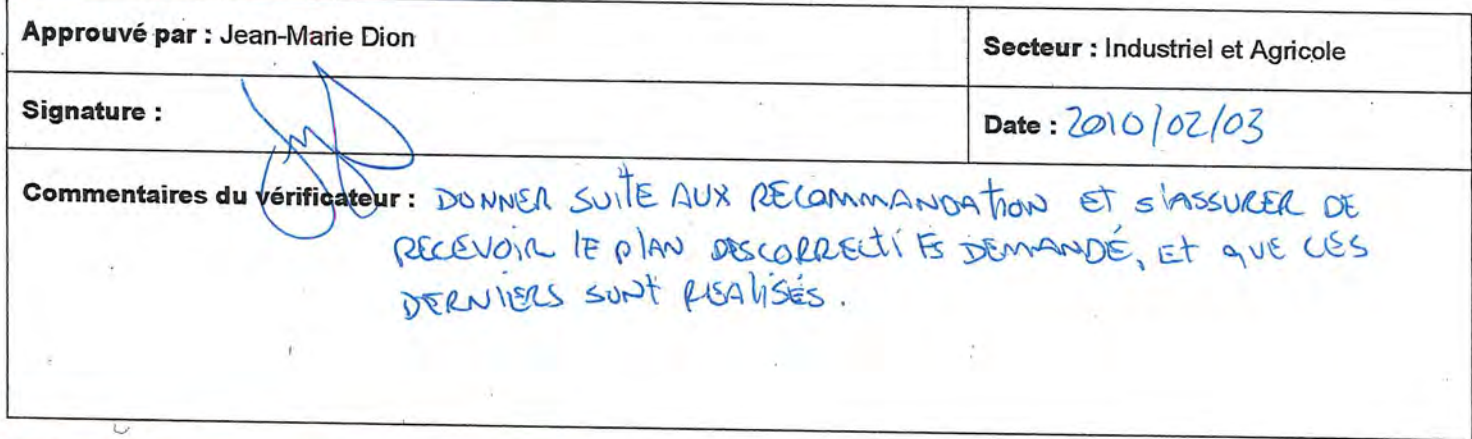 Approuvé par : Jean-Marie Dion
Secteur : Industriel et Agricole
Signature :
Date : 2010/02/03
Commentaires du vérificateur : DONNER SUITE AUX RECOMMANDATION ET S'ASSURER DE
RECEVOIR LE PLAN DES CORRECTIFS DEMANDÉ, ET QUE CES
DERNIERS SONT RÉALISÉS.